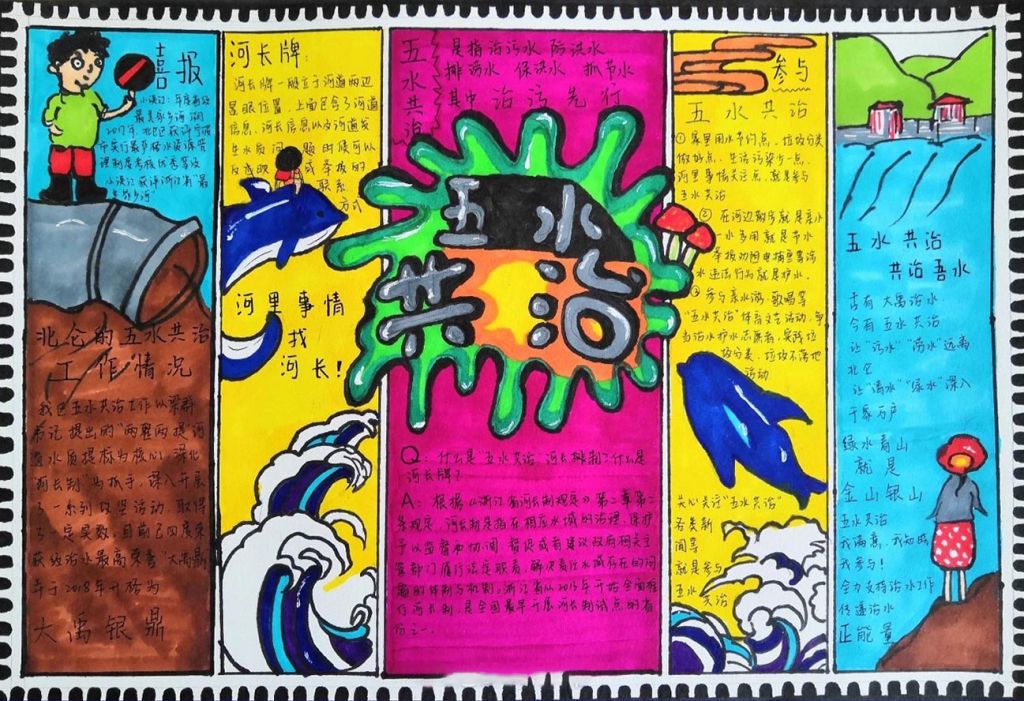 喜报
小浃江:年度省级
最美家乡河湖
2017年,北仑区获评宁波
市实行最严格水资源管
理制度考核优秀等级
小浃江获评浙江省"最
美家乡河"
北仑的五水共治
工作情况
我区五水共治工作以梁群
书记提出的"两覆两提"河
道水质提标为核心,深化
河长制"为抓手,深入开展
了一系列攻坚活动,取得
了一定实效,目前已四度荣
获级治水最高荣誉 大禹鼎
并于2018年升格为
大禹银鼎
河长牌:
河长牌一般立于河道两边
显眼位置,上面包含了河道
信息、河长信息以及河道发
生水质问题时候可以
反映或举报的
联系
方式
河里事情
找
河长!
五水共治
是指治污水 防洪水
排涝水 保供水 抓节水
其中治污先行
五水
共治
Q:什么是"五水共治"河长制制?什么是
河长牌?
A:根据《浙江省河长制规定》第二章第二
条规定,河长制是指在相应水域的治理、保护
予以监督和协调,督促或者建议政府相关主
管部门履行法定职责、解决责任水域存在的问
题的体制与机制。浙江省从2013年开始全面推
行河长制,是全国最早开展河长制试点的省
份之一.
参与
五水共治
①家里用水节约点,垃圾分类
做好点,生活污染少一点,
河里事情关注点,就是参与
五水共治
②在河边散步就是亲水
一水多用就是节水
举报动图电捕鱼等涉
水违法行为就是护水.
③参与亲水游、歌唱等
"五水共治"体育文艺活动,争
当治水护水志愿者,实践垃
圾分类、垃圾不落地
活动
关心关注"五水共治"
各类新
闻等
就是参与
五水共治
五水共治
共治吾水
古有大禹治水
今有五水共治
让"污水""涝水"远离
北仑
让"清水""绿水"深入
千家万户
绿水青山
就是
金山银山
五水共治
我满意,我知晓
我参与!
全力支持治水工作
传递治水
正能量